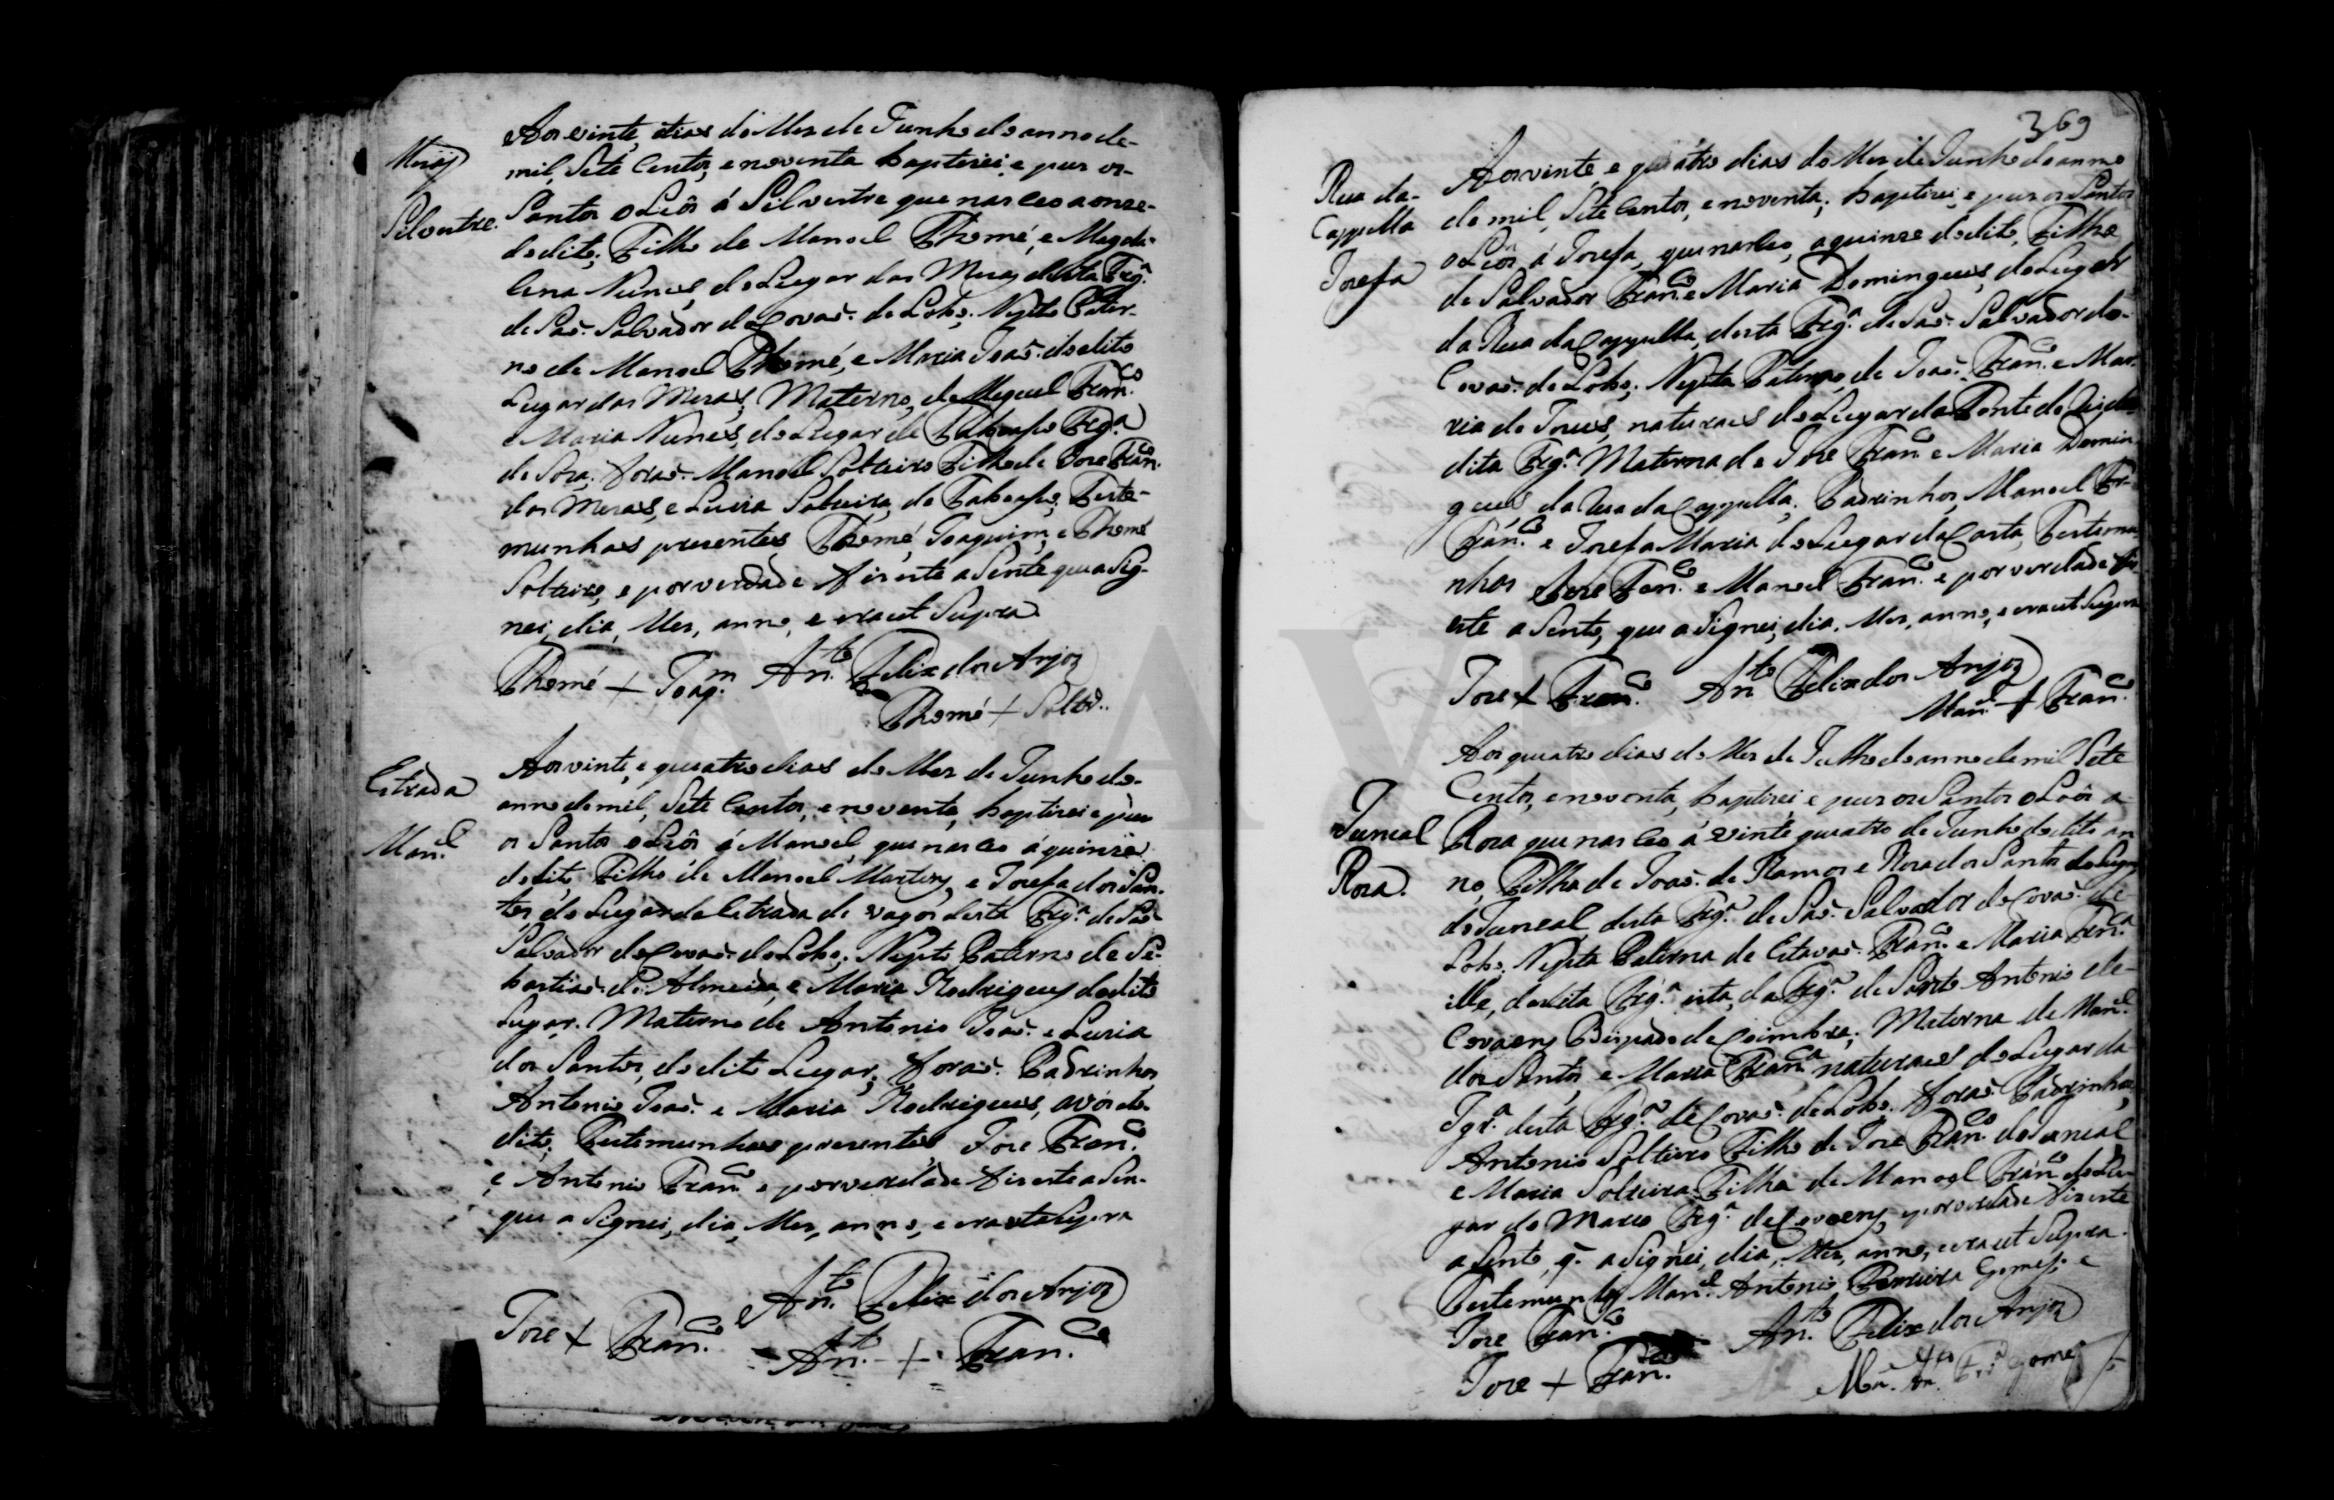 Meſas
Silvestre.
Aos vinte, dias do Mes de Junho do anno de-
mil, Sete Centos, e noventa baptizei e pus os-
Santos oLeôs á Silvestre que nasceo aonze-
dodito; Filho de Manoel Thomé, e Magda-
lena Nunes, do Lugar das Mesas desta Frg.ª
de Saõ Salvador de Covaõ do Lobo; Neptto Pater-
no de Manoel Thomé, e Maria Joaõ dodito
Lugar das Mesas; Materno, de Miguel Fran.co
e Maria Nunes, do Lugar de Frg.ª
de Soza; foraõ Manoel Solteiro Filho de Jose Fran.co
das Mesas, e Luzia Solteira, de Teste-
munhas presentes Thomé, Joaquim, e Thomé
Solteiro, e por verdade fis este aSento que aSig-
nei, dia, Mes, anno, e era ut Supra
Thomé + Joaq.m An.to Felix dos Anjos
Thomé + Soltr.º
Estrada
Man.el
Aos vinte, e quatro dias do Mes de Junho do-
anno de mil, Sete Centos, e noventa, baptizei e pus
os Santos oLeôs á Manoel, que nasceo áquinze
dodito, Filho de Manoel Martins, e Josefa dos San-
tos, do Lugar da Estrada de Vagos desta Frg.ª de Saõ
Salvador de Covaõ do Lobo; Neptto Paterno de Se-
bastiaõ de Almeida, e Maria Rodrigues dodito
Lugar. Materno de Antonio Joaõ e Luzia
dos Santos, dodito Lugar; foraõ Padrinhos
Antonio Joaõ e Maria Rodrigues, avós do-
dito; Testemunhas presentes, Jose Fran.co
e Antonio Fran.co e por verdade fis este aSen-
que aSignei, dia, Mes, anno, e era ut Supra
An.to Felix dos Anjos
Jose + Fran.co An.to + Fran.co
369
Rua da-
Cappella
Josefa
Aos vinte, e quatro dias do Mes de Junho do anno
de mil, Sete Centos, e noventa; baptizei, e pus os Santos
oLeôs á Josefa, que nasceo, aquinze dodito, Filha
de Salvador Fran.co e Maria Domingues, do Lugar
da Rua da Cappella, desta Frg.ª de Saõ Salvador do-
Covaõ do Lobo; Neptta Paterna, de Joaõ Fran.co e Ma-
ria de Jesus, naturaes do Lugar da Fonte do
dita Frg.ª Materna de Jose Fran.co e Maria Domin
gues, da Rua da Cappella; Padrinhos, Manoel
Fran.co e Josefa Maria do Lugar da Costa, Testemu
nhas Jose Fran.co e Manoel Fran.co e por verdade fis
este aSento, que aSignei, dia, Mes, anno, e era ut Supra
Jose + Fran.co An.to Felix dos Anjos
Man.el + Fran.co
Juncal
Rosa.
Aos quatro dias do Mes de Julho do anno de mil Sete
Centos, e noventa, baptizei e pus os Santos oLeôs a
Rosa que nasceo á vinte quatro de Junho dodito an
no, Filha de Joaõ de Ramos e Rosa dos Santos do Lugar
do Juncal, desta Frg.ª de Saõ Salvador de Covaõ do
Lobo; Neptta Paterna de Estevaõ Fran.co e Maria Fran.ca
elle, desdita Frg.ª esta, da Frg.ª de Santo Antonio de-
Covoens Bispado de Coimbra; Materna de Man.el
dos Santos e Maria Fran.ca naturaes do Lugar da
Igr.ª desta Frg.ª de Covaõ do Lobo. foraõ Padrinhos,
Antonio Solteiro Filho de Jose Fran.co do Juncal
e Maria Solteira Filha de Manoel Fran.co do Lu-
gar do Marco Frg.ª de Covoens, e por verdade fis este
aSento, q̃ aSignei, dia, Mes, anno, e era ut Supra.
Testemunhas Man.el Antonio Ferreira Gomes, e
Jose Fran.co An.to Felix dos Anjos
Jose + Fran.co M.el An.to Fr.ª Gomes